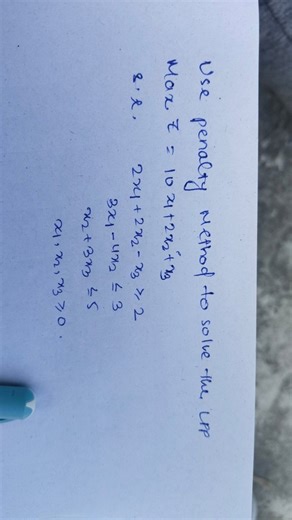 Use penalty method to solve the LPP
Max Z = 10x₁ + 2x₂ + x₃
s.t. 2x₁ + 2x₂ - x₃ ≥ 2
3x₁ - 4x₂ ≤ 3
x₂ + 3x₃ ≤ 5
x₁, x₂, x₃ ≥ 0.